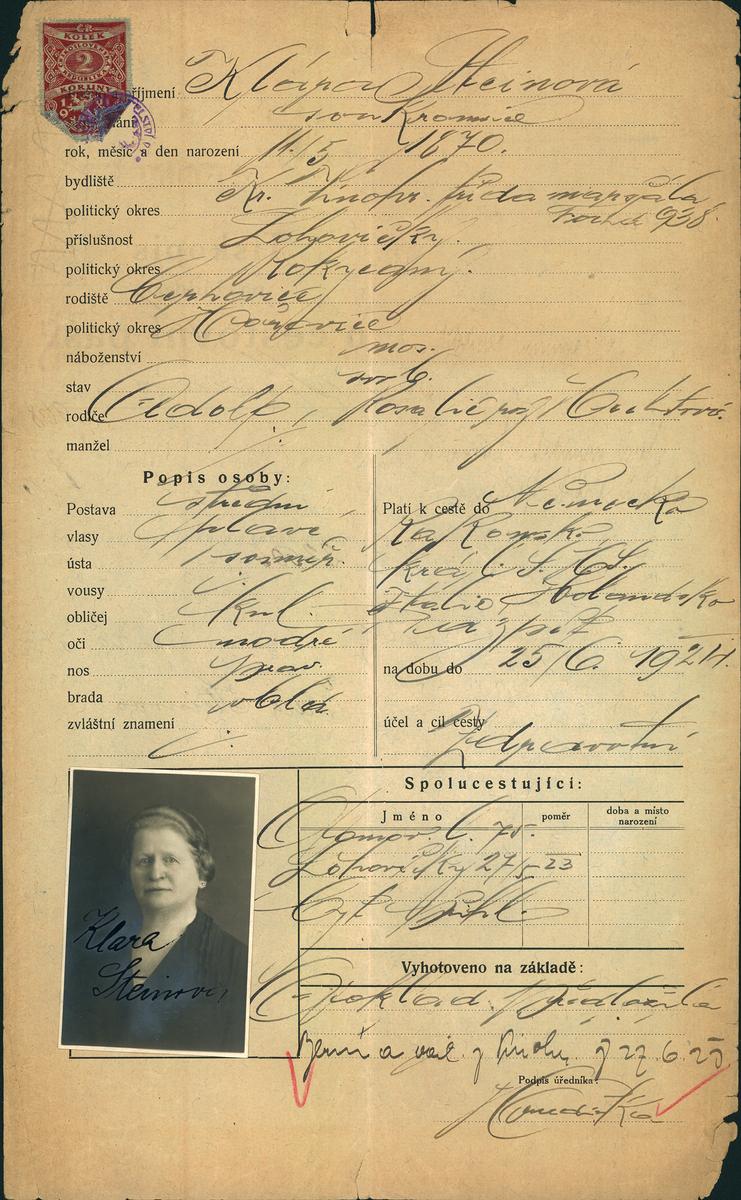 ČR
KOLEK
2
KORUNY
příjmení Klára Steinová
soukromnice
rok, měsíc a den narození 11./5 1870.
bydliště
Kr. Vinohr. třída maršála
politický okres Focha 938
příslušnost Lohovičky.
politický okres Rokycany.
rodiště Cerhovice
politický okres Hořovice
náboženství mos.
stav svob.
rodiče Adolf, Rosalie roz.
manžel
Popis osoby:
Postava střední
vlasy plavé
ústa souměř.
vousy
obličej kul.
oči modré
nos prav.
brada oblá
zvláštní znamení
Platí k cestě do Německa
Rakouska
král. S.H.S.
Italie, Holandska
a zpět
na dobu do 25/6. 1924.
účel a cíl cesty
Zdravotní
Spolucestující:
Jméno poměr doba a místo narození
Domov. l. 75.
Lohovičky 27/5 23
Byt. přihl.
Vyhotoveno na základě:
Doklad. předložila
Berní a vál. z Vinohr. 27.6.25
Podpis úředníka:
Klara
Steinová